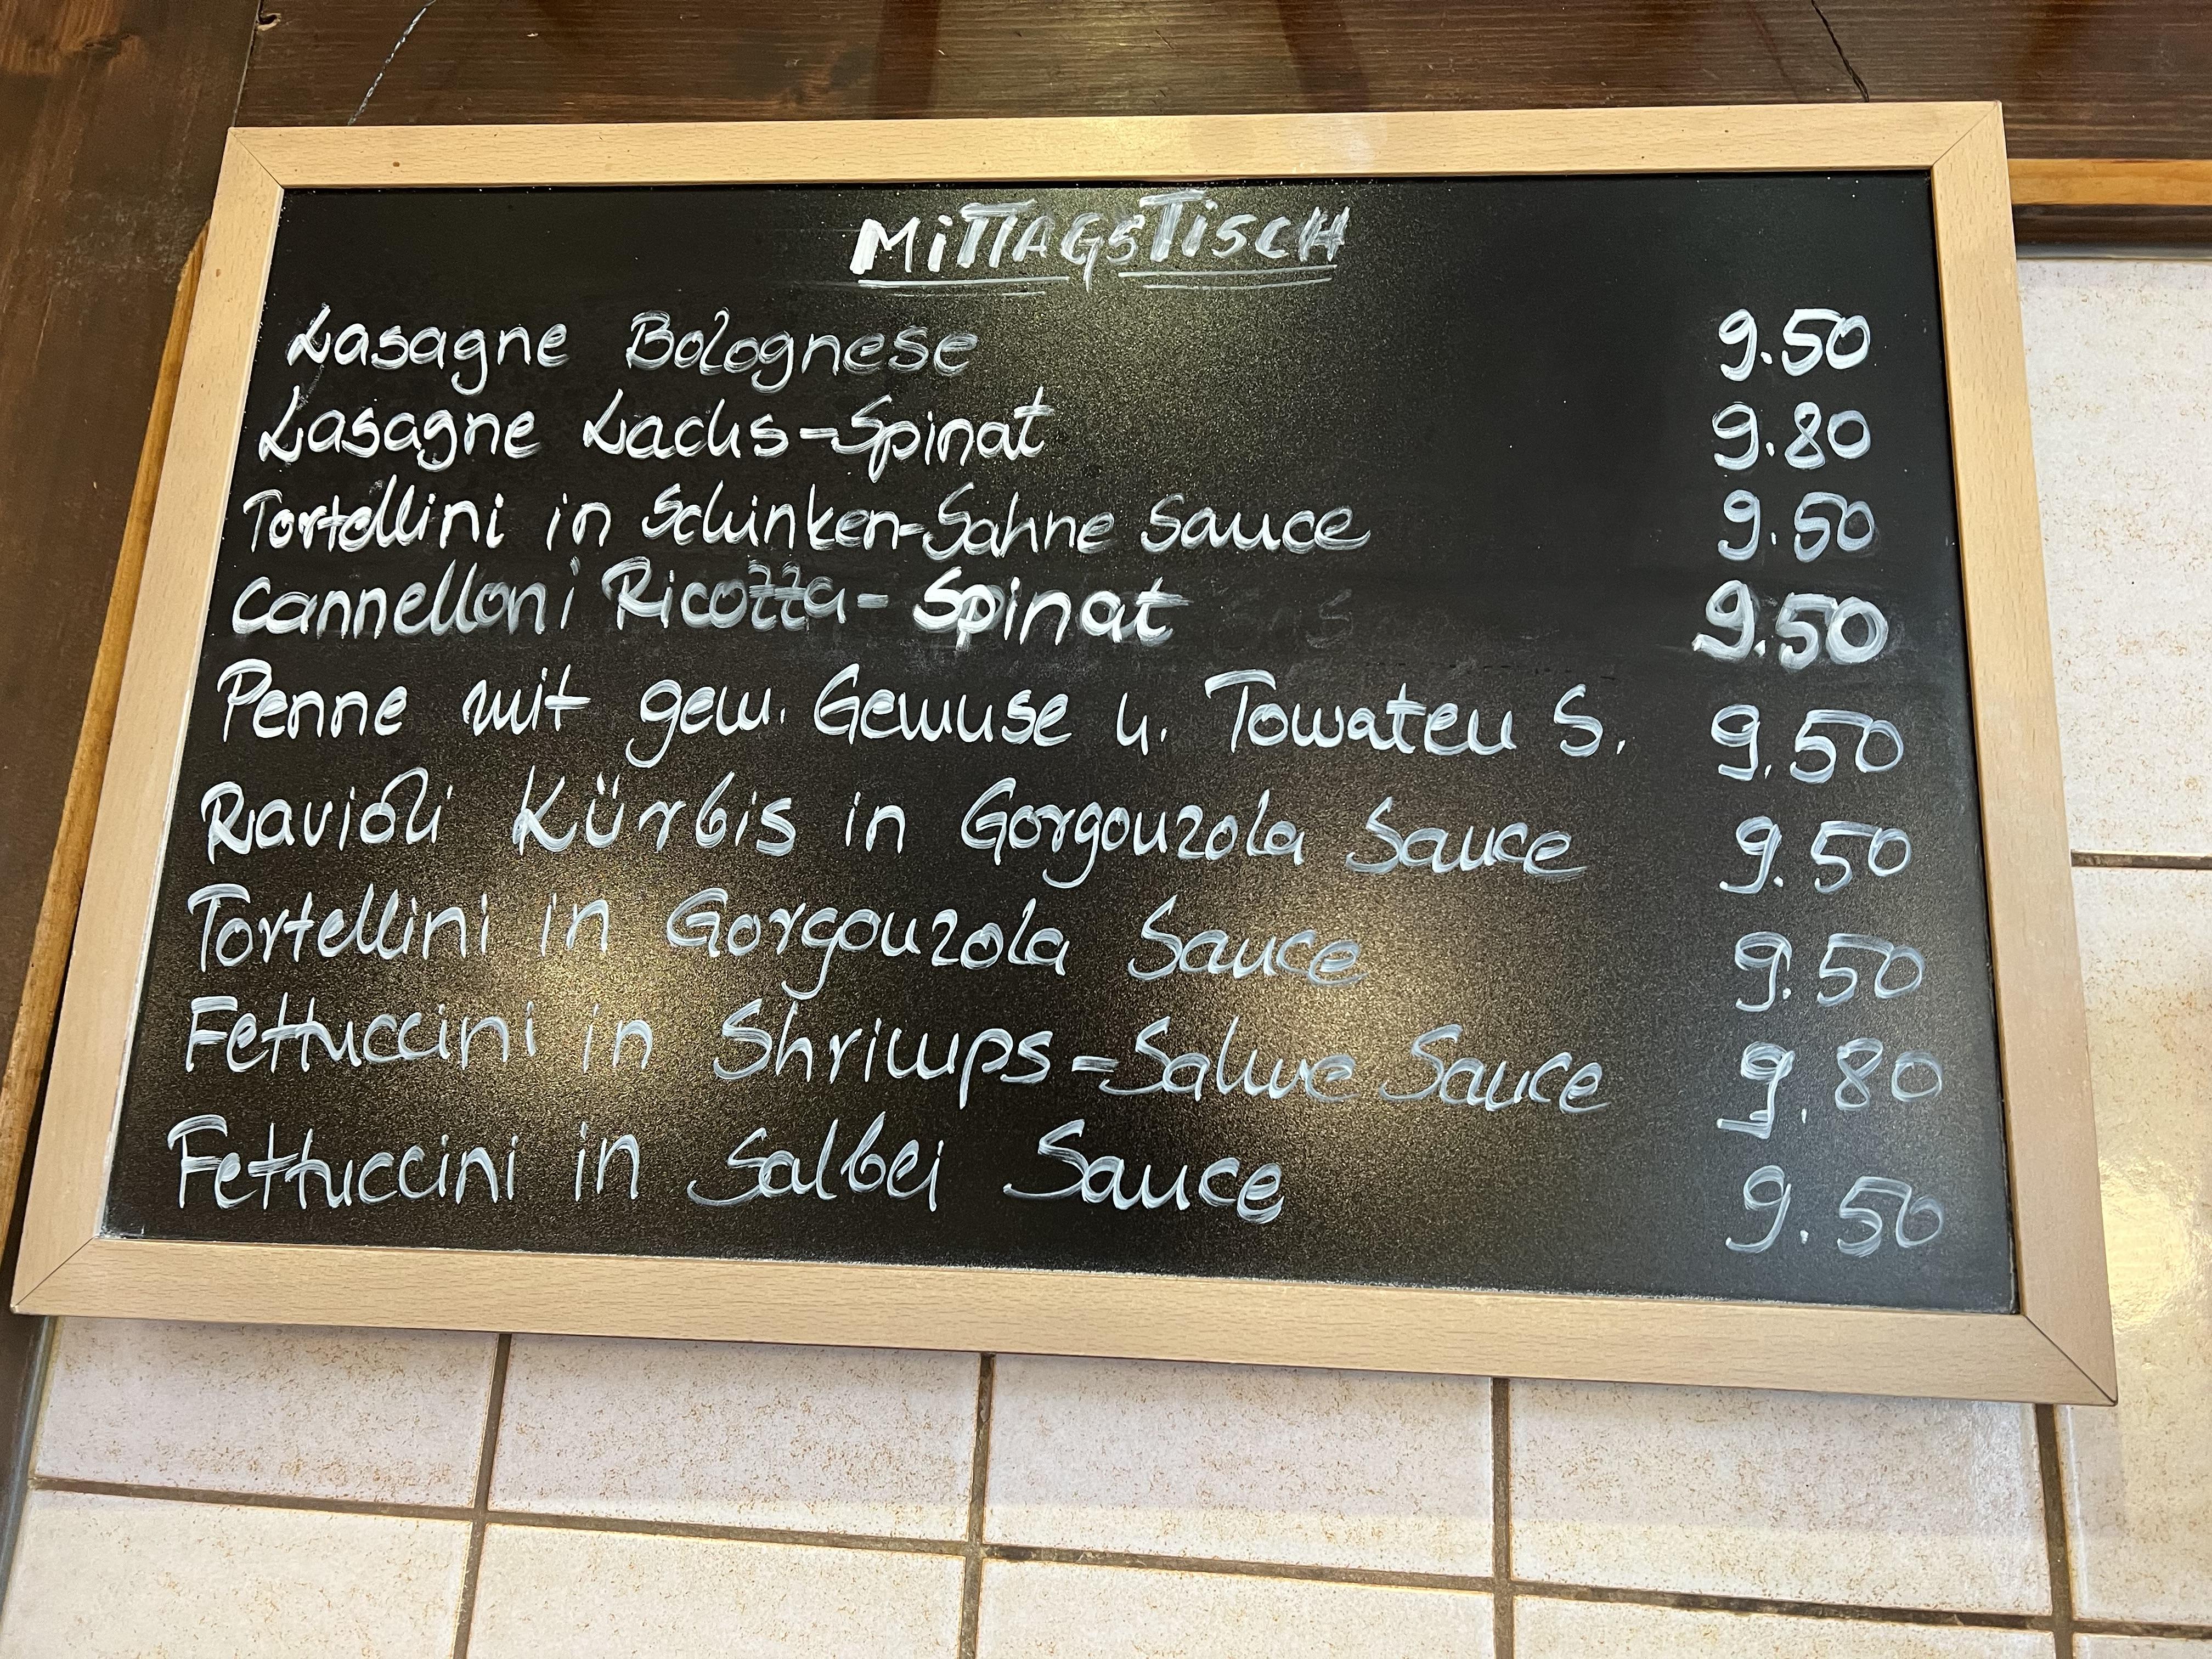 MITTAGSTISCH
Lasagne Bolognese 9.50
Lasagne Lachs-Spinat 9.80
Tortellini in Schinken-Sahne Sauce 9.50
Cannelloni Ricotta-Spinat 9.50
Penne mit gem. Gemuse u. Tomaten S. 9.50
Ravioli Kürbis in Gorgonzola Sauce 9.50
Tortellini in Gorgonzola Sauce 9.50
Fettuccini in Shrimps-Sahne Sauce 9.80
Fettuccini in Salbei Sauce 9.50